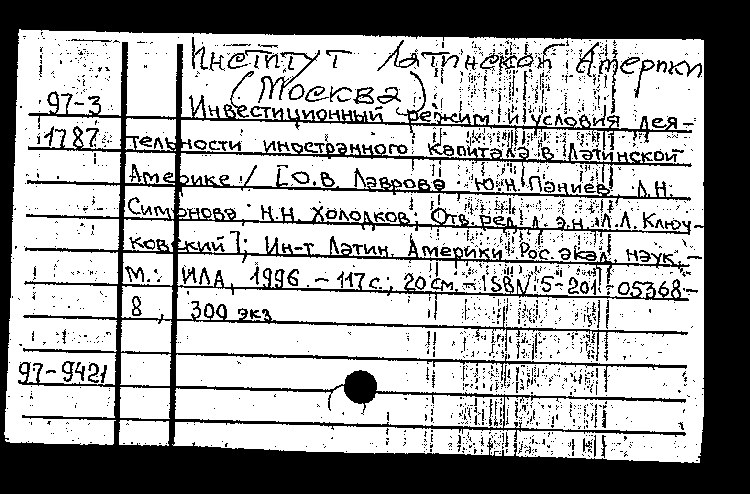 Институт Латинской Америки
(Москва)
97-3 Инвестиционный режим и условия дея-
1787 тельности иностранного капитала в Латинской
Америке / [О.В. Лаврова, Ю.Н. Паниев, Л.Н.
Симонова, Н.Н. Холодков; Отв. ред. д.э.н. Л.Л. Клоч-
ковский]; Ин-т Латин. Америки Рос. акад. наук. -
М.: ИЛА, 1996. - 117 с.; 20 см. - ISBN 5-201-05368-
8, 300 экз
97-9421